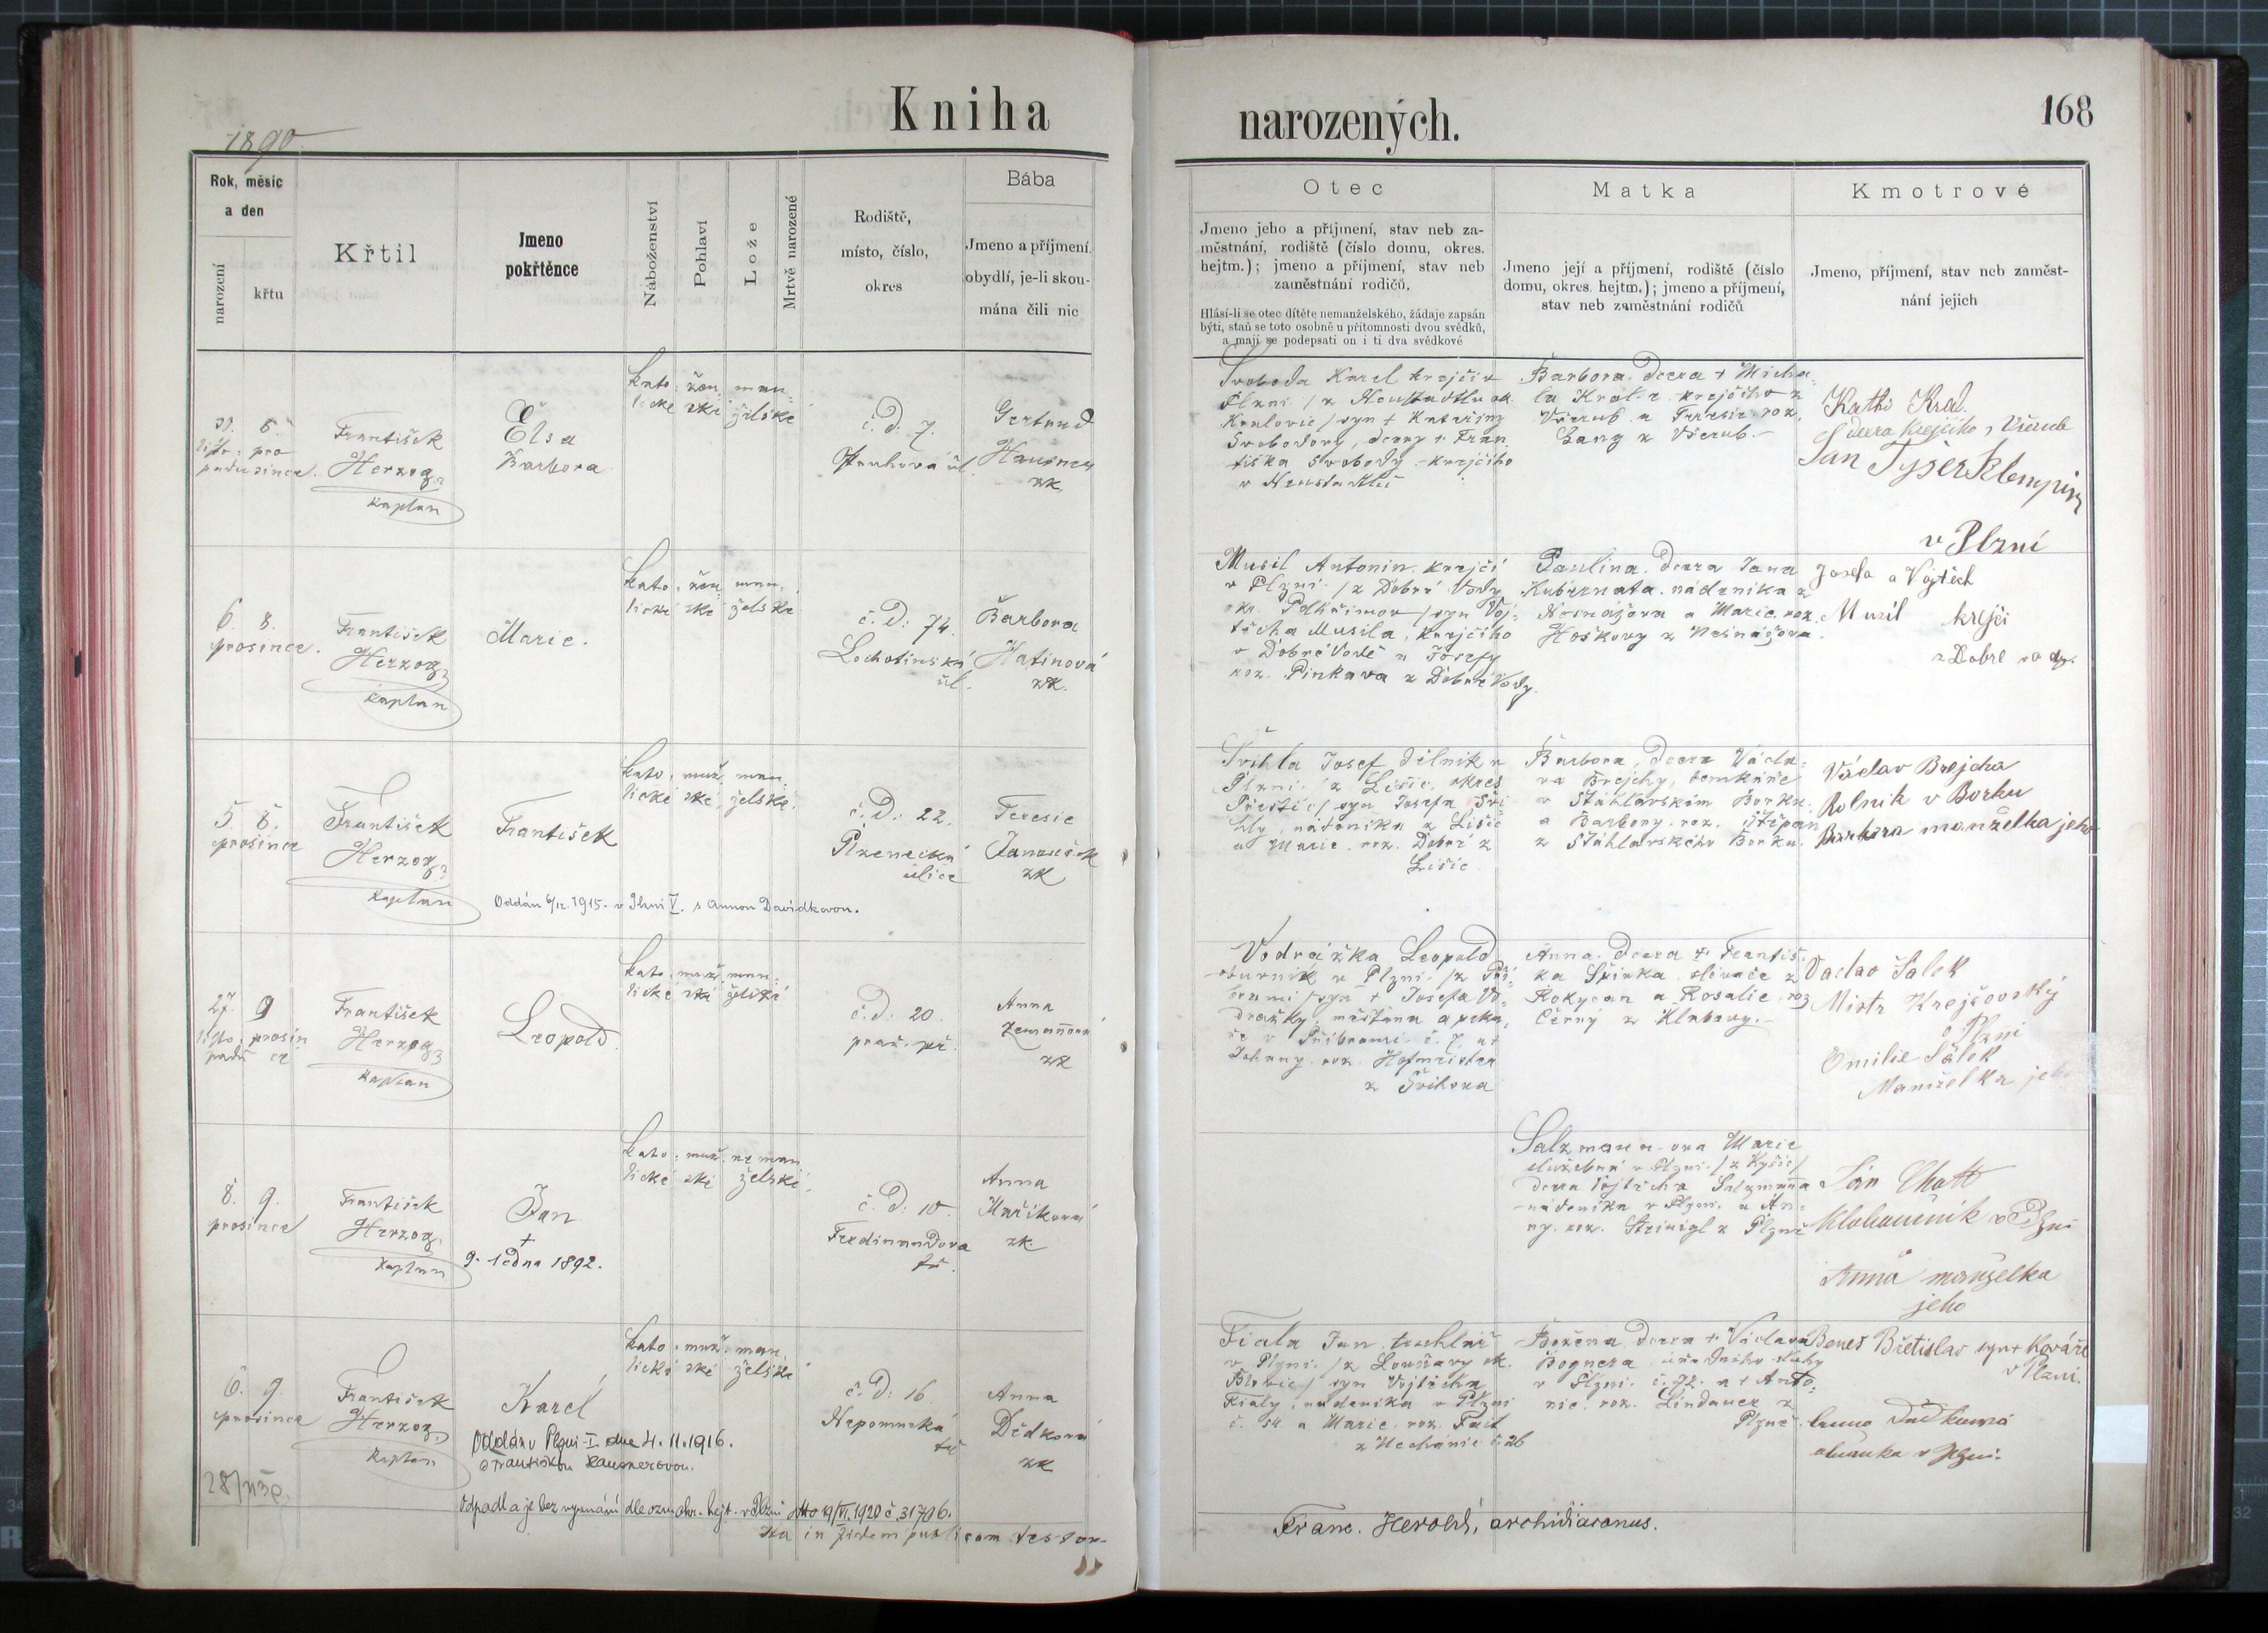 Kniha
narozených.
168
1890
Rok, měsíc
a den
narození
křtu
Křtil
Jmeno
pokřtěnce
Náboženství
Pohlaví
Lože
Mrtvě narozené
Rodiště,
místo, číslo,
okres
Bába
Jmeno a příjmení,
obydlí, je-li skou-
mána čili nic
Otec
Jmeno jeho a příjmení, stav neb za-
městnání, rodiště (číslo domu, okres.
hejtm.); jmeno a příjmení, stav neb
zaměstnání rodičů.
Hlásí-li se otec dítěte nemanželského, žádaje zapsán
býti, staň se toto osobně u přítomnosti dvou svědků,
a mají se podepsati on i ti dva svědkové
Matka
Jmeno její a příjmení, rodiště (číslo
domu, okres. hejtm.); jmeno a příjmení,
stav neb zaměstnání rodičů
Kmotrové
Jmeno, příjmení, stav neb zaměst-
nání jejich
30. 8.
listo- pro
padu since.
František
Herzog
kaplan
Elsa
Barbora
kato- žen- man-
lické ské želské
č. d. 7.
úl.
Gertrud
zk.
Svoboda Karel krejčí v
Plzni / z Neustadtlu ok.
Kralovic / syn + Kateřiny
Svobodovy, dcery + Fran
tiška Svobody krejčího
v Neustadtlu
Barbora dcera + Micha-
la Král-e krejčího z
Všerub a Teresie roz.
Lang z Všerub.
Kathi Kral.
dcera krejčího z Všerub
Jan Tyser Klempíř
v Plzní
6. 8.
prosince.
František
Herzog
kaplan
Marie.
kato- žen- man-
lické ské želské
č. d. 74.
Lochotínská
úl.
Barbora
Hatinová
zk.
Musil Antonín krejčí
v Plzni / z Dobré Vody
okr. Pelhřimov / syn Voj-
těcha Musila, krejčího
v Dobré Vodě a Josefy
roz. Pinkava z Dobré Vody.
Paulina dcera Jana
nádeníka z
a Marie roz.
Hoškovy z
Josefa a Vojtěch
Musil krejčí
z Dobré vody.
5. 8.
prosince
František
Herzog
kaplan
František
Oddán 6/12. 1915. v Plzni V. s Annou Davídkovou.
kato- muž- man-
lické ské želské
č. d. 22.
Plzenecká
ulice
Teresie
Janoušek
zk
Švihla Josef dělník v
Plzni / z Lišic okres
Přeštic / syn Josefa Švi-
hly, nádeníka z Lišic
a Marie roz. Dobrý z
Lišic
Barbora, dcera Václa-
va Brejchy, domkáře
v Stáhlavském Borku
a Barbory roz. Štěpán
z Stáhlavského Borku.
Václav Brejcha
Rolník v Borku
Barbora manželka jeho
27. 9
listo- prosin
padu ce
František
Herzog
kaplan
Leopold
kato- muž- man-
lické ské želské
č. d. 20.
praž. př.
Anna
Zemanová
zk
Vodrážka Leopold
obuvník v Plzni / z Pří-
brami / syn + Josefa Vo-
dražky, měšťana a peka-
ře v Příbrami č. 7. a +
Johany roz. Hofmeister
z Švihova
Anna dcera + Františ-
ka slévače z
Rokycan a Rosalie roz
Černý z Klabavy.
Vaclav Šalek
Mistr Krejčovský
v Plzni
Emilie Šálek
Manželka jeho
8. 9.
prosince
František
Herzog
kaplan
Jan
+
9. ledna 1892.
kato- muž- ne man
lické ské želské
č. d. 10.
Ferdinandova
tř.
Anna
Maříková
zk
Salzmann-ova Marie
služebná v Plzni / z Kyšic /
dcera Vojtěcha Salzmanna
nádeníka v Plzni a An-
ny roz. Steinigl z Plzně
Jan Chott
Klobaučník v Plzni
Anna manželka
jeho
6. 9.
prosince
František
Herzog
kaplan
Karel
Oddán v Plzni-I. dne 4. 11. 1916.
s Františkou Hausnerovou.
kato- muž- man
lické ské želské
č. d. 16
Nepomucká
tř
Anna
Dědková
zk
Fiala Jan truhlář
v Plzni / z Louňavy ok.
Blovic / syn Vojtěcha
Fialy, nádeníka v Plzni
č. 54 a Marie roz. Fait
z Nechanic č. 26
Božena dcera + Václava
Bognera úředního sluhy
v Plzni č. 92. a + Anto-
nie roz. Lindauer z
Plzně.
Beneš Břetislav syn + Kováře
v Plzni.
v Plzni.
Odpadl a je bez vyznání dle ozn. okr. hejt. v Plzni dtto 19/VI. 1920 č. 31706.
Ita in fidem publicam testor
Franc. Herold, archidiaconus.